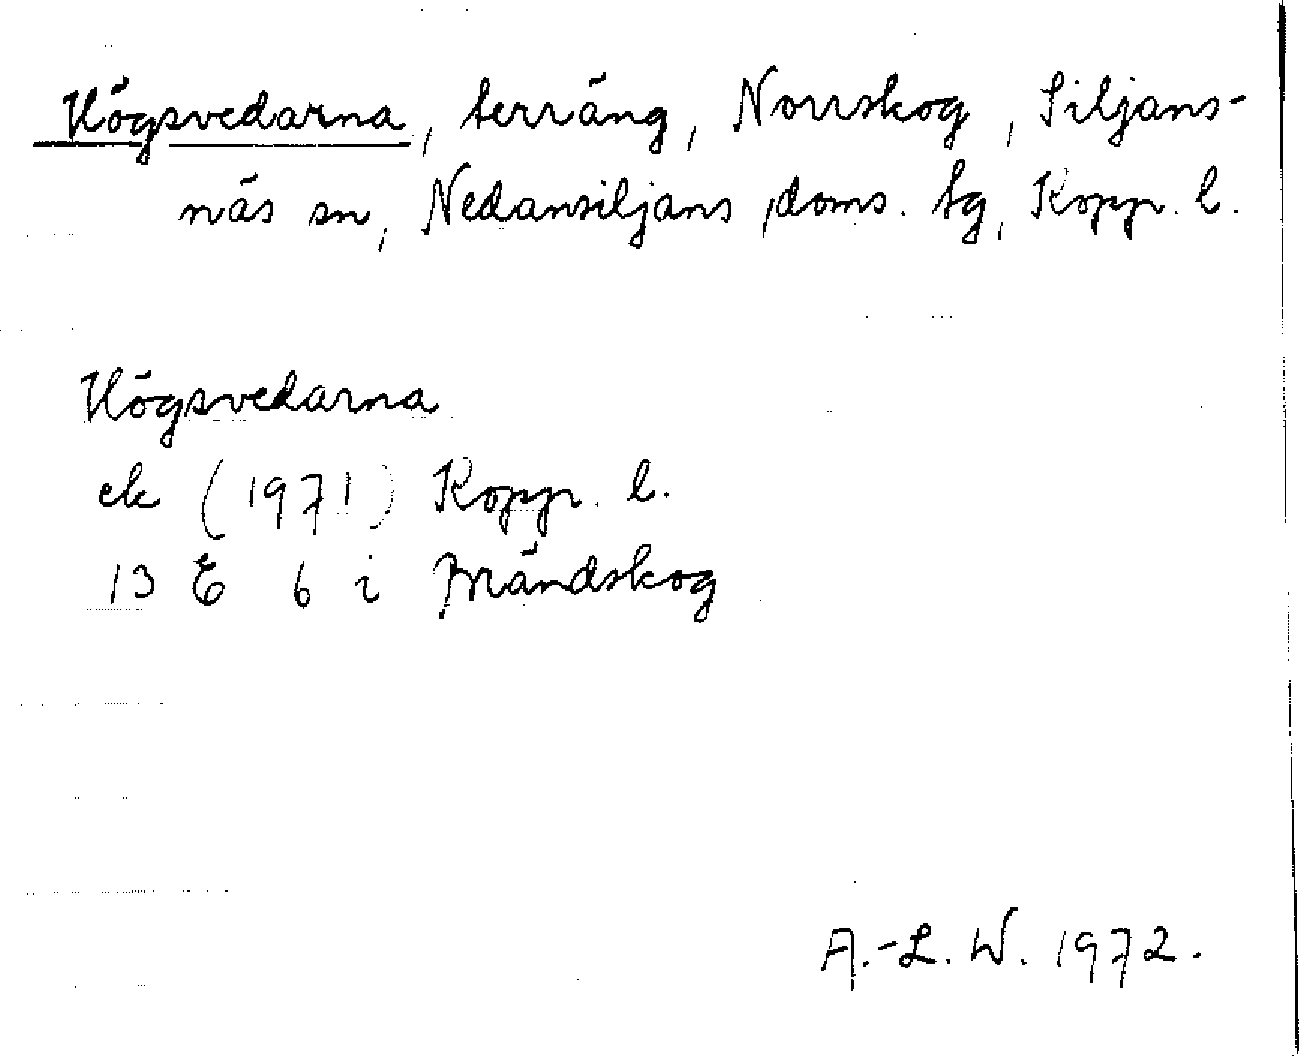 Högsvedarna, terräng, Norrskog, Siljans-
näs sn, Nedansiljans doms. tg, Kopp. l.
Högsvedarna
ek (1971) Kopp. l.
13 E 6 i Brändskog
A.-L. W. 1972.